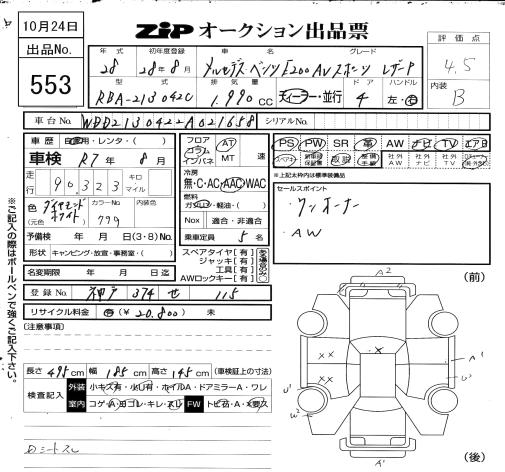 10月24日
ZIP オークション出品票
出品No.
553
評価点
4.5
内装
B
年式 初年度登録 車名 グレード
28 28年8月 メルセデス・ベンツ E200 AVスポーツ レザーP
型式 排気量 ドア ハンドル
RBA-213042C 1,990cc ディーラー・並行 4 左・右
車台No. WDD2130422A021658 シリアルNo.
車歴 自家用・レンタ・( )
車検 R7年8月
走行 90,323 キロ マイル
色 ダイヤモンドホワイト (元色) カラーNo. 799 内装色
予備検 年 月 日(3・8)No.
形状 キャンピング・放宣・事務室・( )
名変期限 年 月 日迄
フロア コラム インパネ AT MT 速
冷房 無・C・AC・AAC・WAC
燃料 ガソリン・軽油・( )
Nox 適合・非適合
乗車定員 5名
スペアタイヤ[有]
ジャッキ[有]
工具[有]
AWロックキー[有]
PS PW SR 革 AW ナビ TV エアB
取説 整備手帳 社外AW 社外ナビ 社外TV
※上記太枠内は標準装備品
セールスポイント
・ワンオーナー
・AW
登録No. 神戸 374 せ 115
リサイクル料金 有(¥20,800) 未
(注意事項)
長さ 495cm 幅 185cm 高さ 145cm (車検証上の寸法)
検査記入 外装 小キズ有・小U有・ホイルA・ドアミラーA・ワレ
室内 コゲ・A・ヨゴレ・キレ・スレ FW トビ石・A・X要ス
Dシートスレ
※ご記入の際はボールペンで強くご記入下さい。
(前)
A2
×
×× ××
A1
U1 U2
W2
A1
(後)